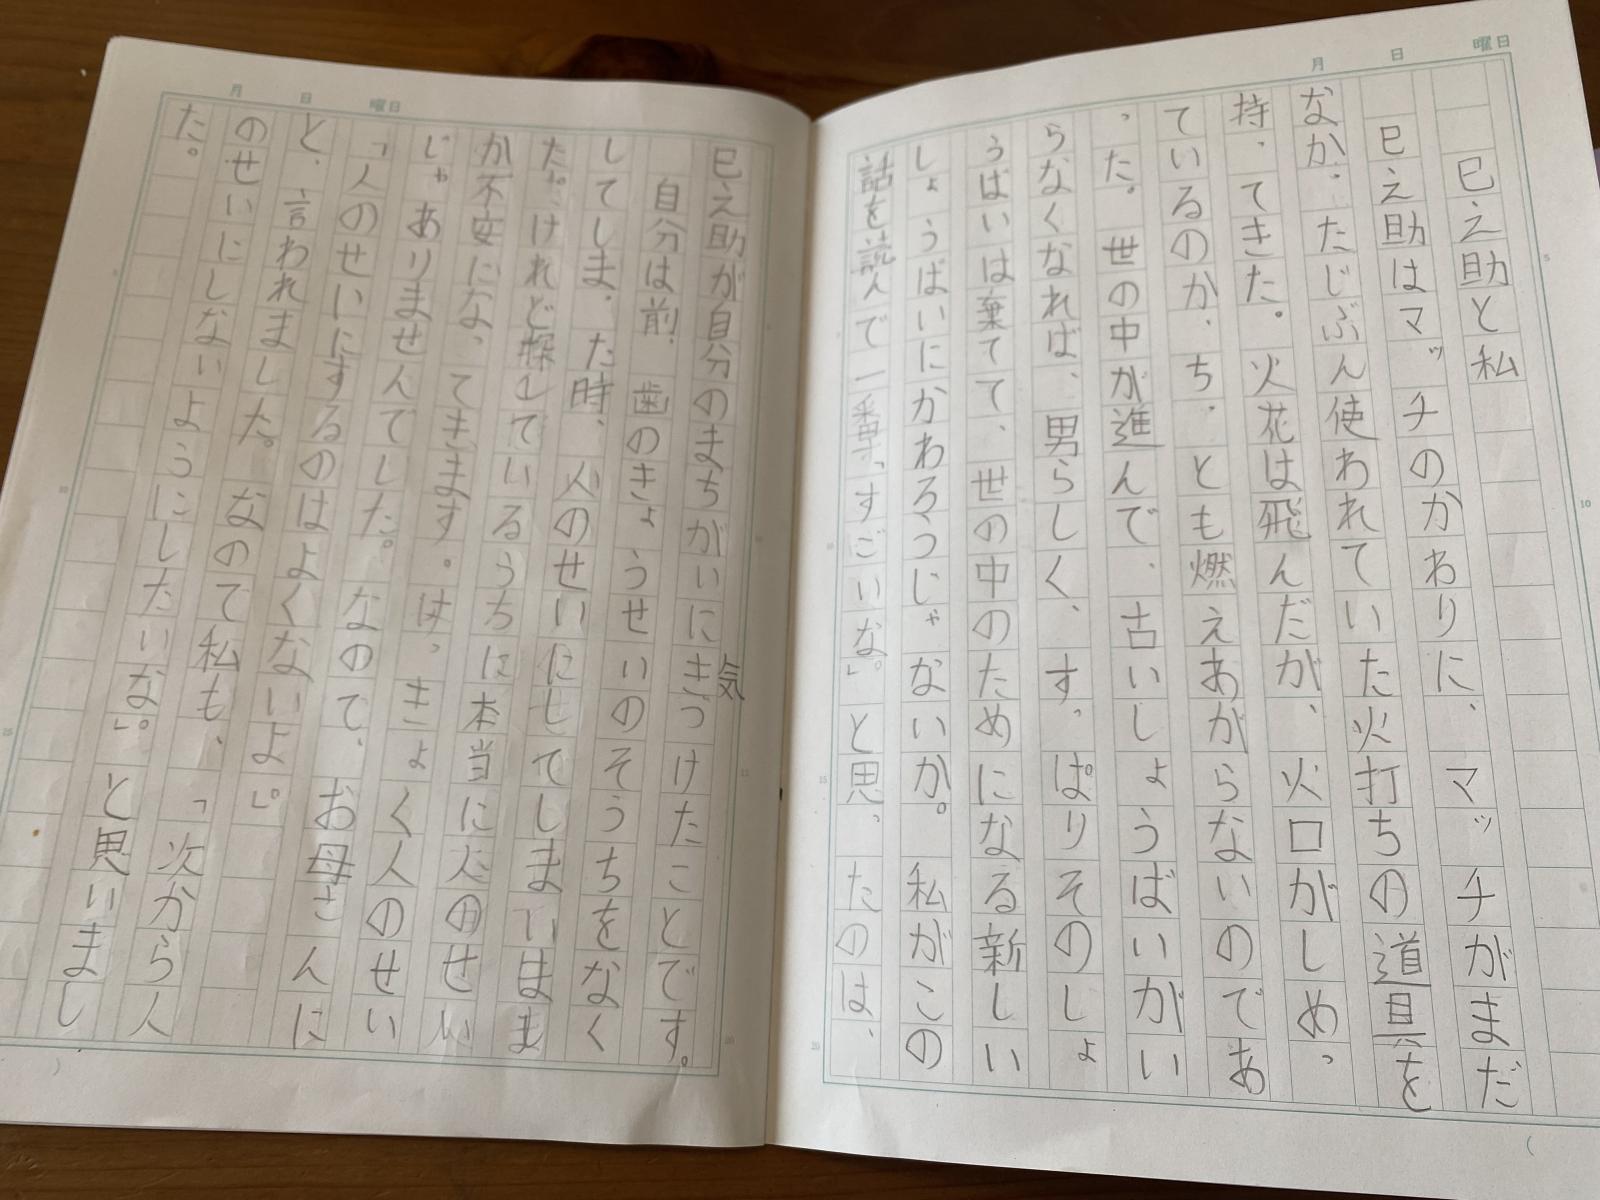 曜日
日
月
巳之助と私
巳之助はマッチのかわりに、マッチがまだ
なかったじぶん使われていた火打ちの道具を
持ってきた。火花は飛んだが、火口がしめっ
ているのか、ちっとも燃えあがらないのであ
った。世の中が進んで、古いしょうばいがい
らなくなれば、男らしく、すっぱりそのしょ
うばいは棄てて、世の中のためになる新しい
しょうばいにかわろうじゃないか。私がこの
話を読んで一番「すごいな。」と思ったのは、
曜日
日
月
巳之助が自分のまちがいにきづけたことです。
気
自分は前、歯のきょうせいのそうちをなく
してしまった時、人のせいにしてしまいまし
た。けれど探しているうちに本当に人のせい
か不安になってきます。はっきょく人のせい
じゃありませんでした。なので、お母さんに
「人のせいにするのはよくないよ。」
と、言われました。なので私も、「次から人
のせいにしないようにしたいな。」と思いまし
た。